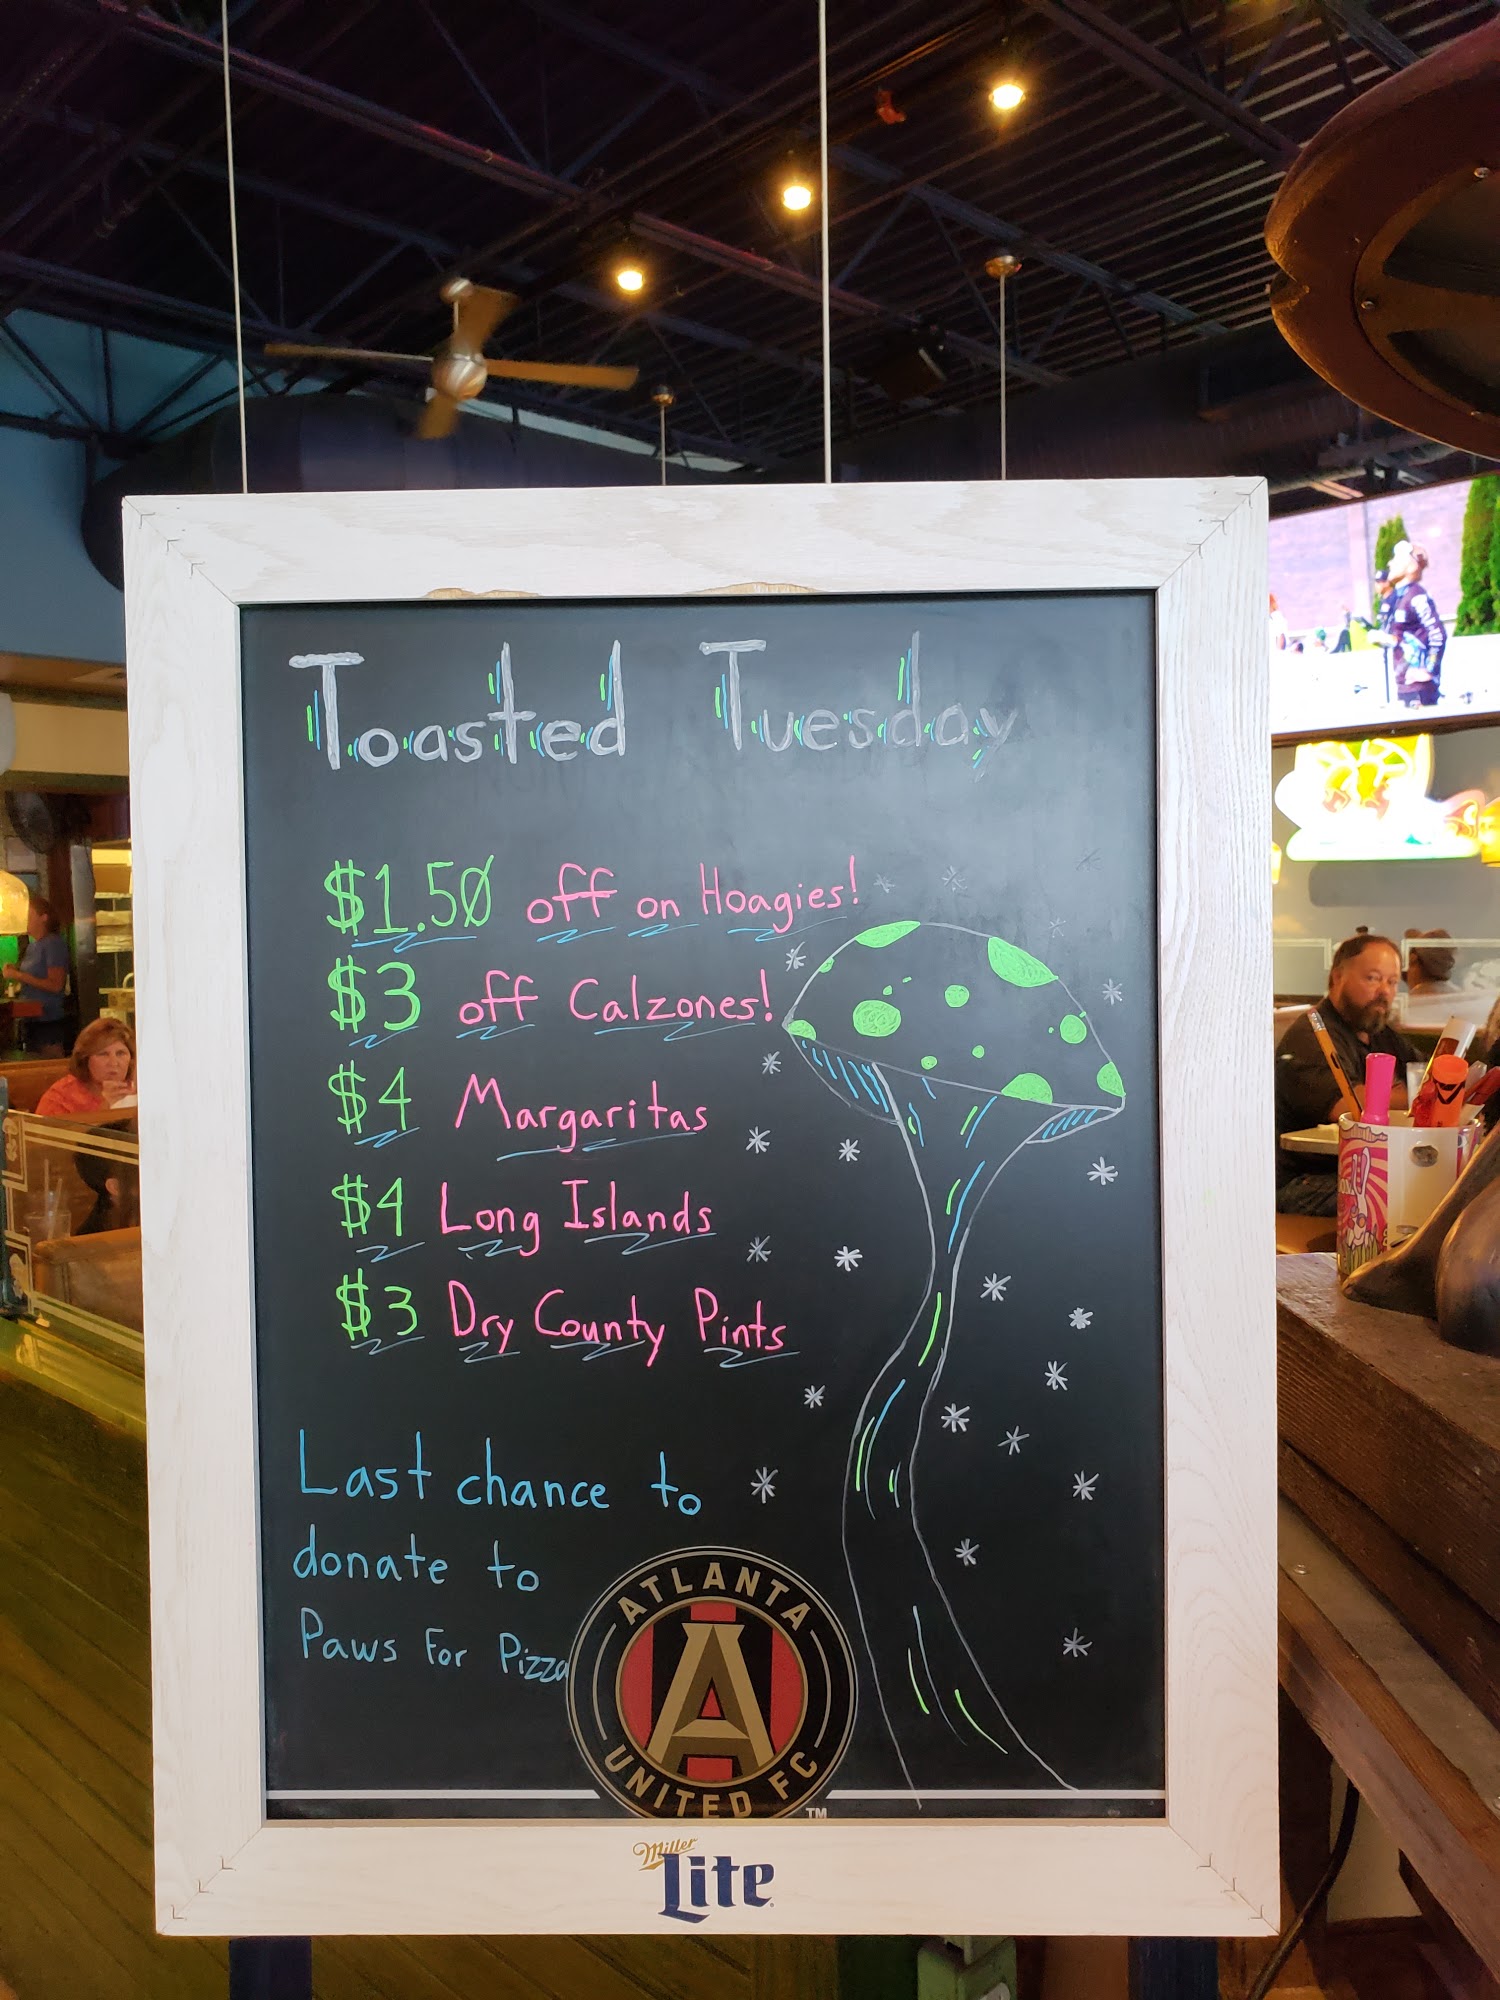 Toasted Tuesday
$1.50 off on Hoagies!
$3 off Calzones!
$4 Margaritas
$4 Long Islands
$3 Dry County Pints
Last chance to
donate to
Paws For Pizza
ATLANTA
A
UNITED FC
TM
Miller
Lite